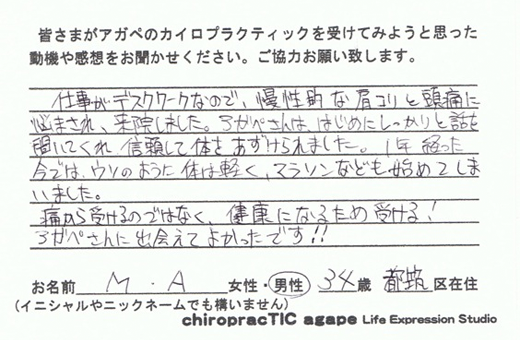 皆さまがアガペのカイロプラクティックを受けてみようと思った
動機や感想をお聞かせください。ご協力お願い致します。
仕事がデスクワークなので、慢性的な肩コリと頭痛に
悩まされ、来院しました。アガペさんは、はじめにしっかりと話を
聞いてくれ信頼して体をあずけられました。1年経った
今では、ウソのように体は軽く、マラソンなども始めてしま
いました。
痛から受けるのではなく、健康になるため受ける!
アガペさんに出会えてよかったです!!
お名前 M・A 女性・男性 34歳 都筑区在住
(イニシャルやニックネームでも構いません)
chiropracTIC agape Life Expression Studio